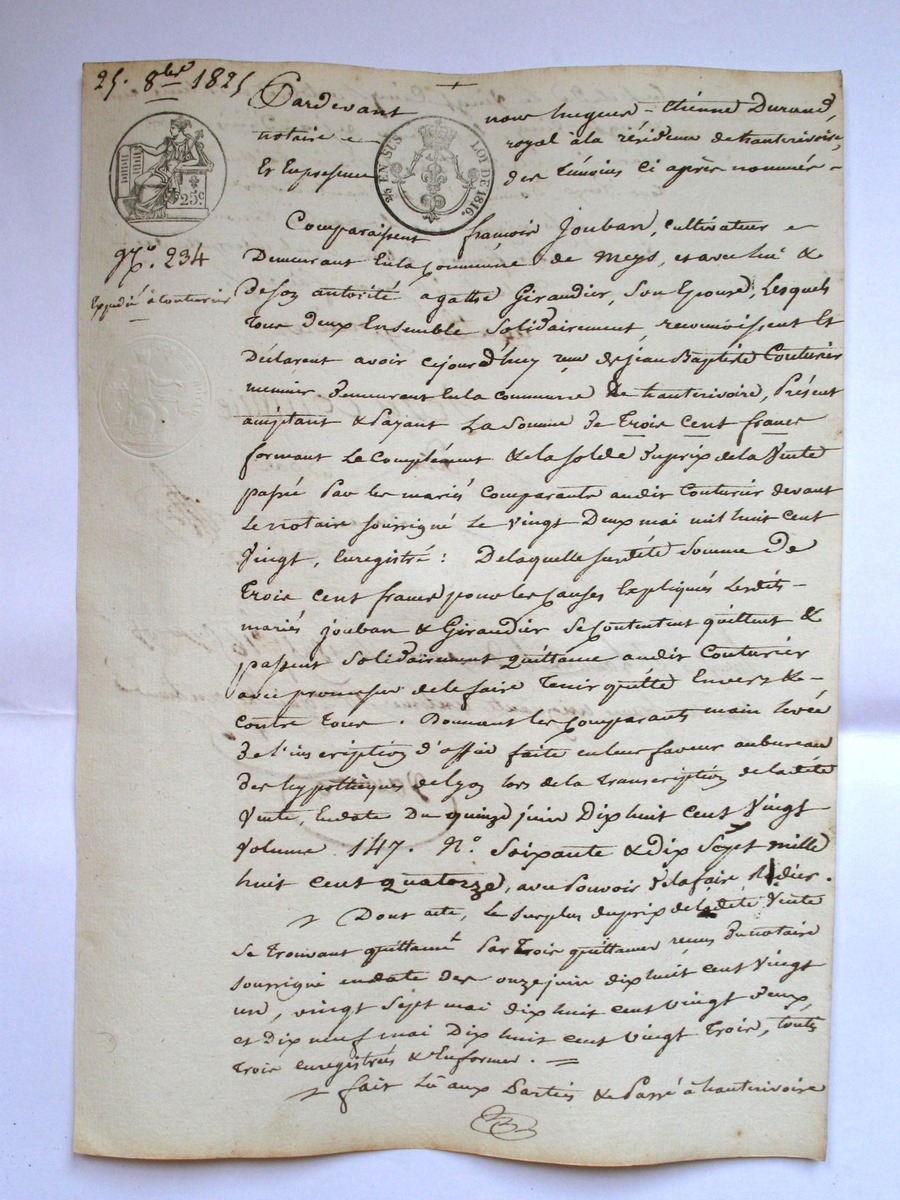 25. 8bre 1825
Pardevant nous hugues - Etienne Durand,
notaire royal à la résidence de hauterivoire,
Et En presence des témoins ci après nommés -
25 c
25 EN SUS LOI DE 1816
No. 234
Expedié à Couturier
Comparaissent françois Jouban, cultivateur
Demeurant En la Commune de Meys, et avec lui &
De son autorité agathe Giraudier, Son Epouse, Lesquels
Tous deux Ensemble Solidairement, reconnoissent Et
Déclarent avoir cejourd'huy reçu de jean Baptiste Couturier
meunier Demeurant En la commune de hauterivoire, Présent
acceptant & Payant La Somme De Trois Cent francs
formant Le Complément & de la solde Du prix de la Vente
passée Par les mariés Comparants audit Couturier devant
Le notaire soussigné Le Vingt Deux mai mil huit cent
Vingt, Enregistré : De laquelle susdite Somme De
Trois cent francs pour les causes Expliquées Lesdits -
mariés Jouban & Giraudier Se contentent quittent &
passent Solidairement Quittance audit Couturier
avec promesse de le faire Tenir quitte Envers &
contre Tous. Donnant les comparants main levée
De l'inscription d'office faite en leur faveur au bureau
Des hypothèques de Lyon lors de la Transcription de la dite
Vente, En date Du quinze juin Dix huit Cent Vingt
Volume 147. No. Soixante & dix Sept mille
huit cent quatorze, avec Pouvoir De la faire Radier.
Dont acte, Le Surplus du prix de la dite Vente
Se Trouvant quittancé Par Trois quittances reçues Du notaire
soussigné en date des onze juin dix huit cent Vingt
un, vingt Sept mai dix huit cent vingt Deux,
et Dix neuf mai Dix huit cent Vingt Trois, toutes
Trois enregistrées & En forme.
fait Lû aux Parties & Passé à hauterivoire